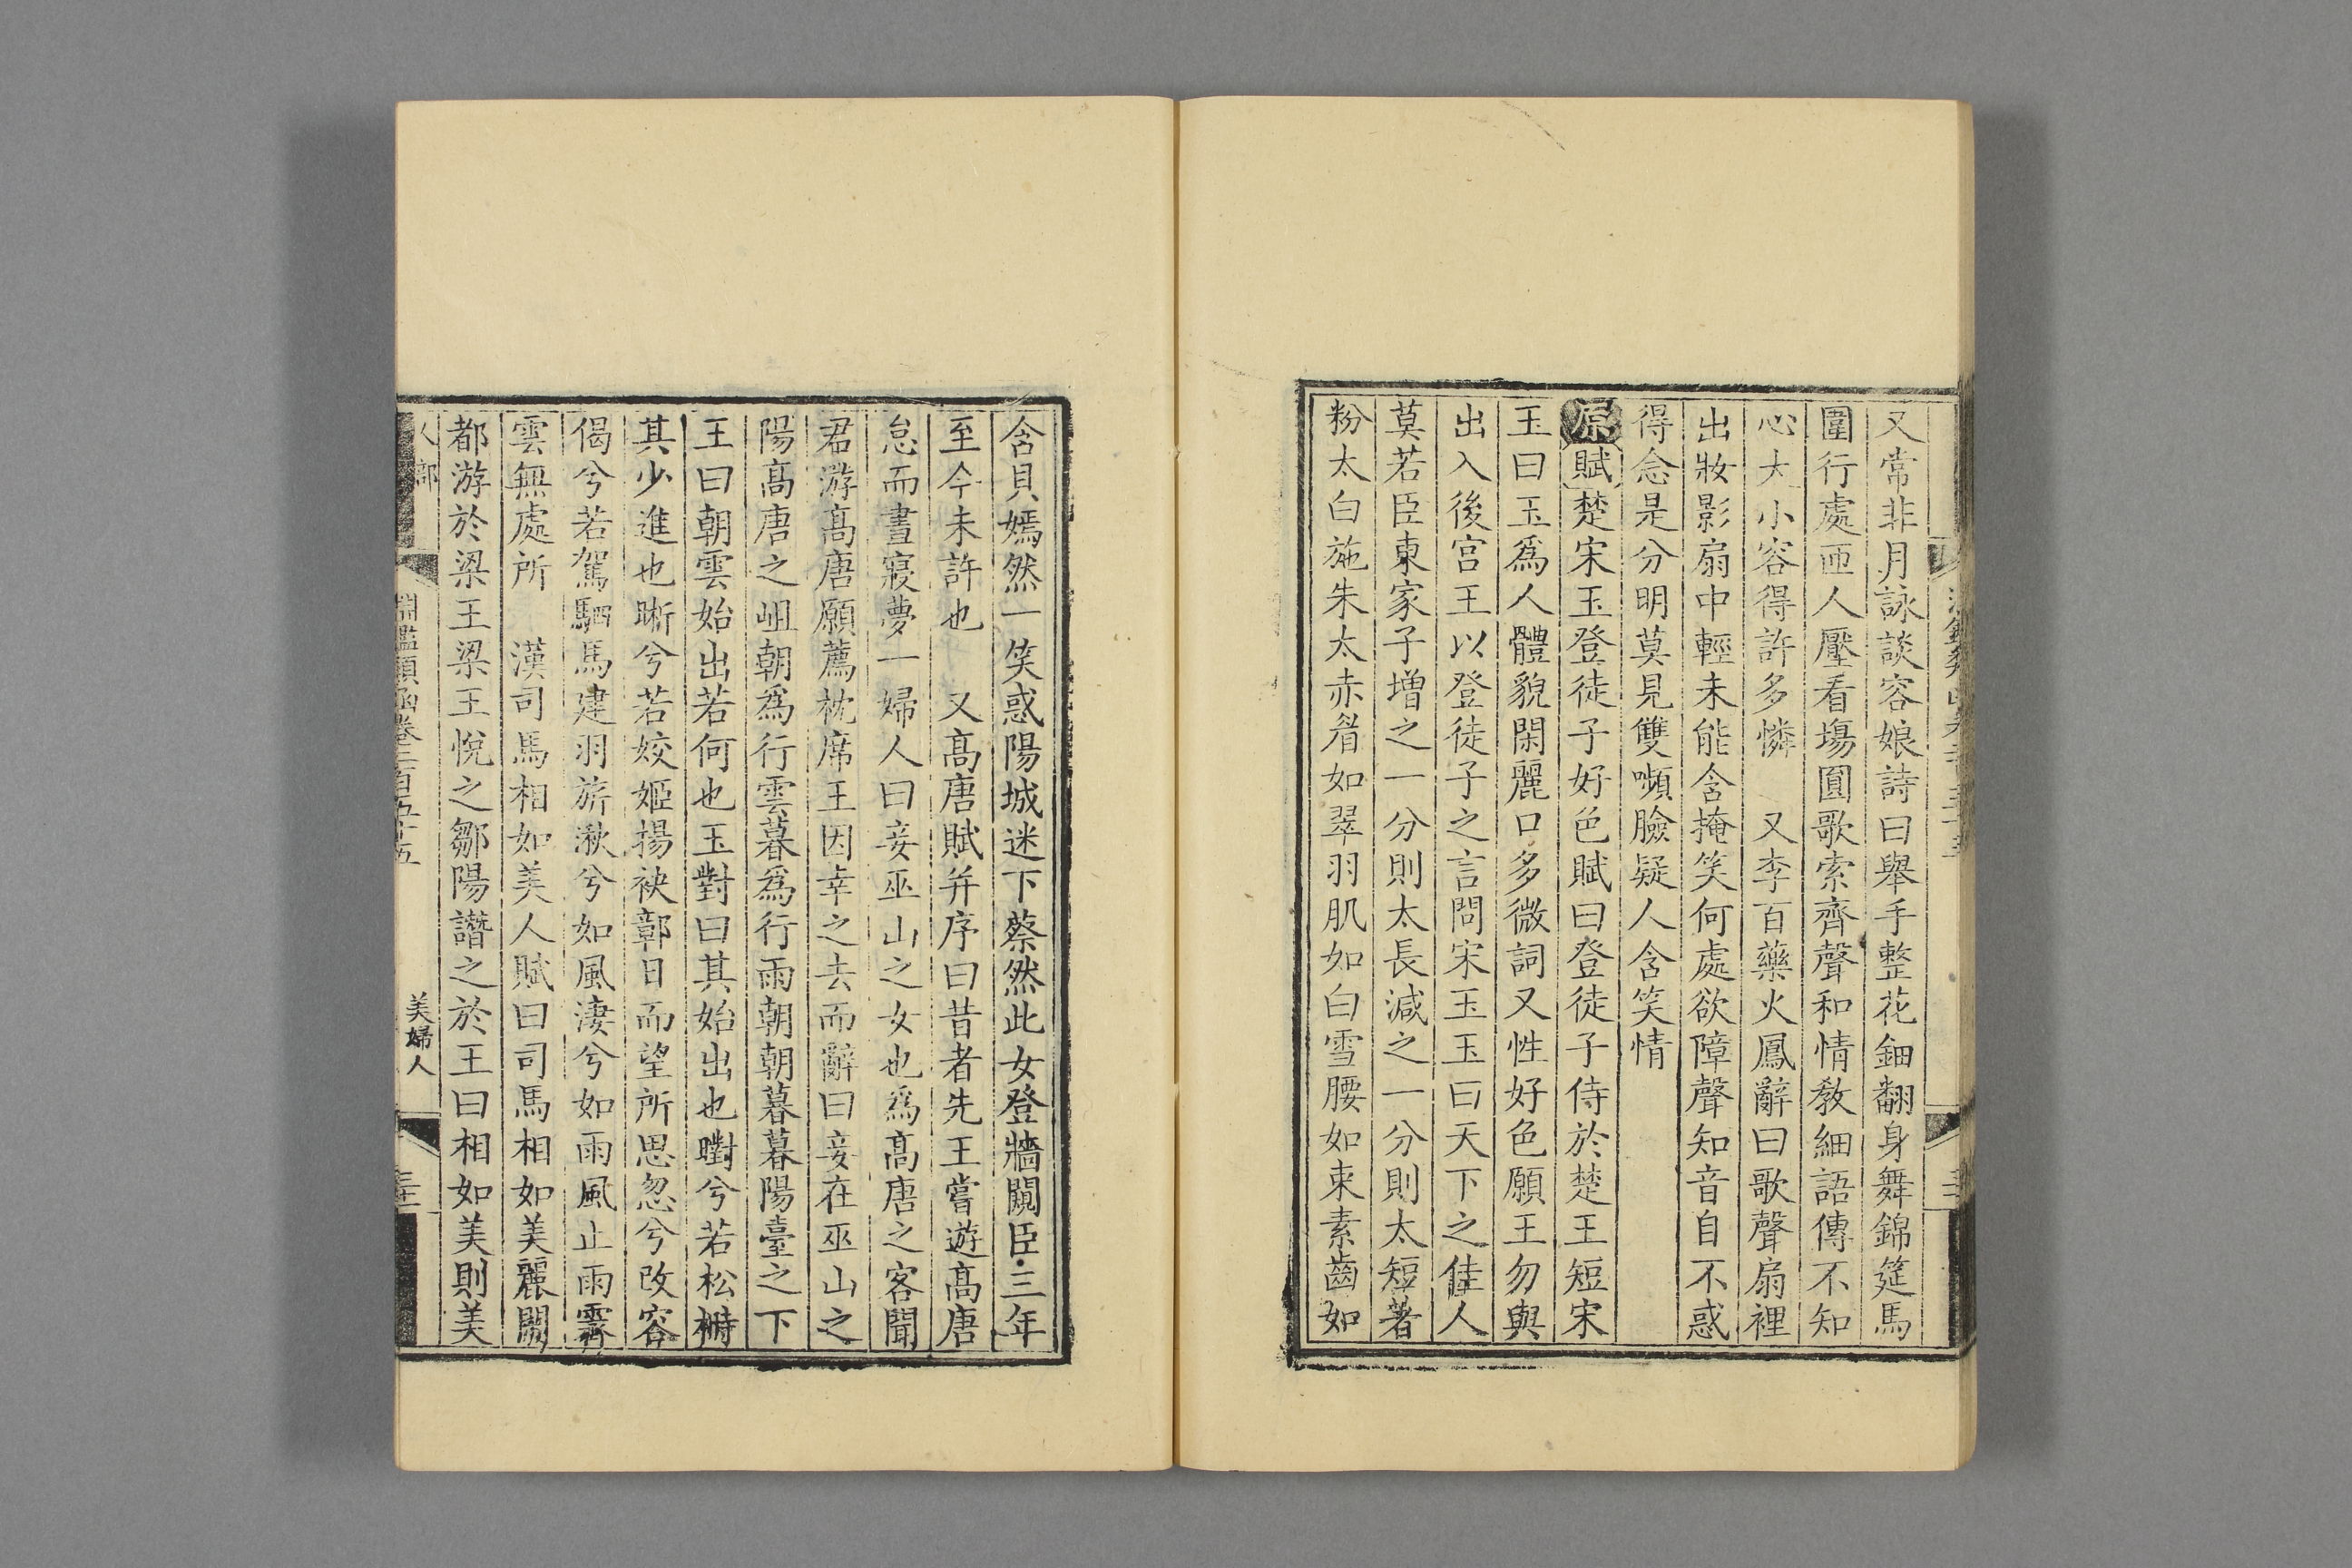 又常非月詠談容娘詩曰舉手整花鈿翻身舞錦筵馬
圍行處匝人壓看塲圓歌索齊聲和情教細語傳不知
心大小容得許多憐　又李百藥火鳳辭曰歌聲扇裡
出妝影扇中輕未能含掩笑何處欲障聲知音自不惑
得念是分明莫見雙嚬臉疑人含笑情
原賦楚宋玉登徒子好色賦曰登徒子侍於楚王短宋
玉曰玉爲人體貌閑麗口多微詞又性好色願王勿與
出入後宫王以登徒子之言問宋玉玉曰天下之佳人
莫若臣東家子增之一分則太長減之一分則太短著
粉太白施朱太赤眉如翠羽肌如白雪腰如束素齒如
含貝嫣然一笑惑陽城迷下蔡然此女登牆闚臣三年
至今未許也　又髙唐賦并序曰昔者先王嘗遊髙唐
怠而晝寢夢一婦人曰妾巫山之女也爲髙唐之客聞
君游髙唐願薦枕席王因幸之去而辭曰妾在巫山之
陽髙唐之岨朝爲行雲暮爲行雨朝朝暮暮陽臺之下
王曰朝雲始出若何也玉對曰其始出也㬣兮若松榯
其少進也晰兮若姣姬揚袂鄣日而望所思忽兮改容
偈兮若駕駟馬建羽旂湫兮如風淒兮如雨風止雨霽
雲無處所　漢司馬相如美人賦曰司馬相如美麗閑
都游於梁王梁王悅之鄒陽譖之於王曰相如美則美
人部
淵鑑類函卷二百五十五
美婦人